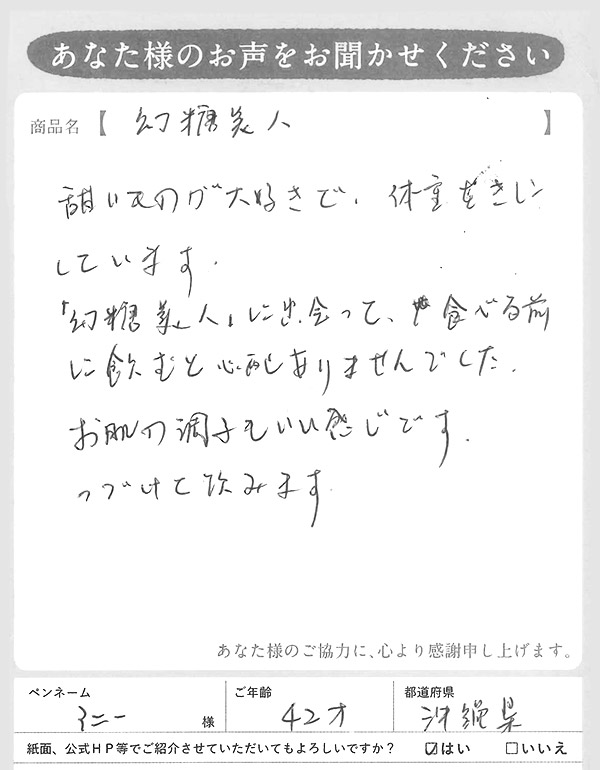 あなた様のお声をお聞かせください
商品名【 幻糖美人 】
甜いものが大好きで、体重をきに
しています。
「幻糖美人」に出会って、食べる前
に飲むと心配ありませんでした。
お肌の調子もいい感じです。
つづけて飲みます
あなた様のご協力に、心より感謝申し上げます。
ペンネーム ご年齢 都道府県
ミニー 様 42才 沖縄県
紙面、公式HP等でご紹介させていただいてもよろしいですか？ ☑はい □いいえ